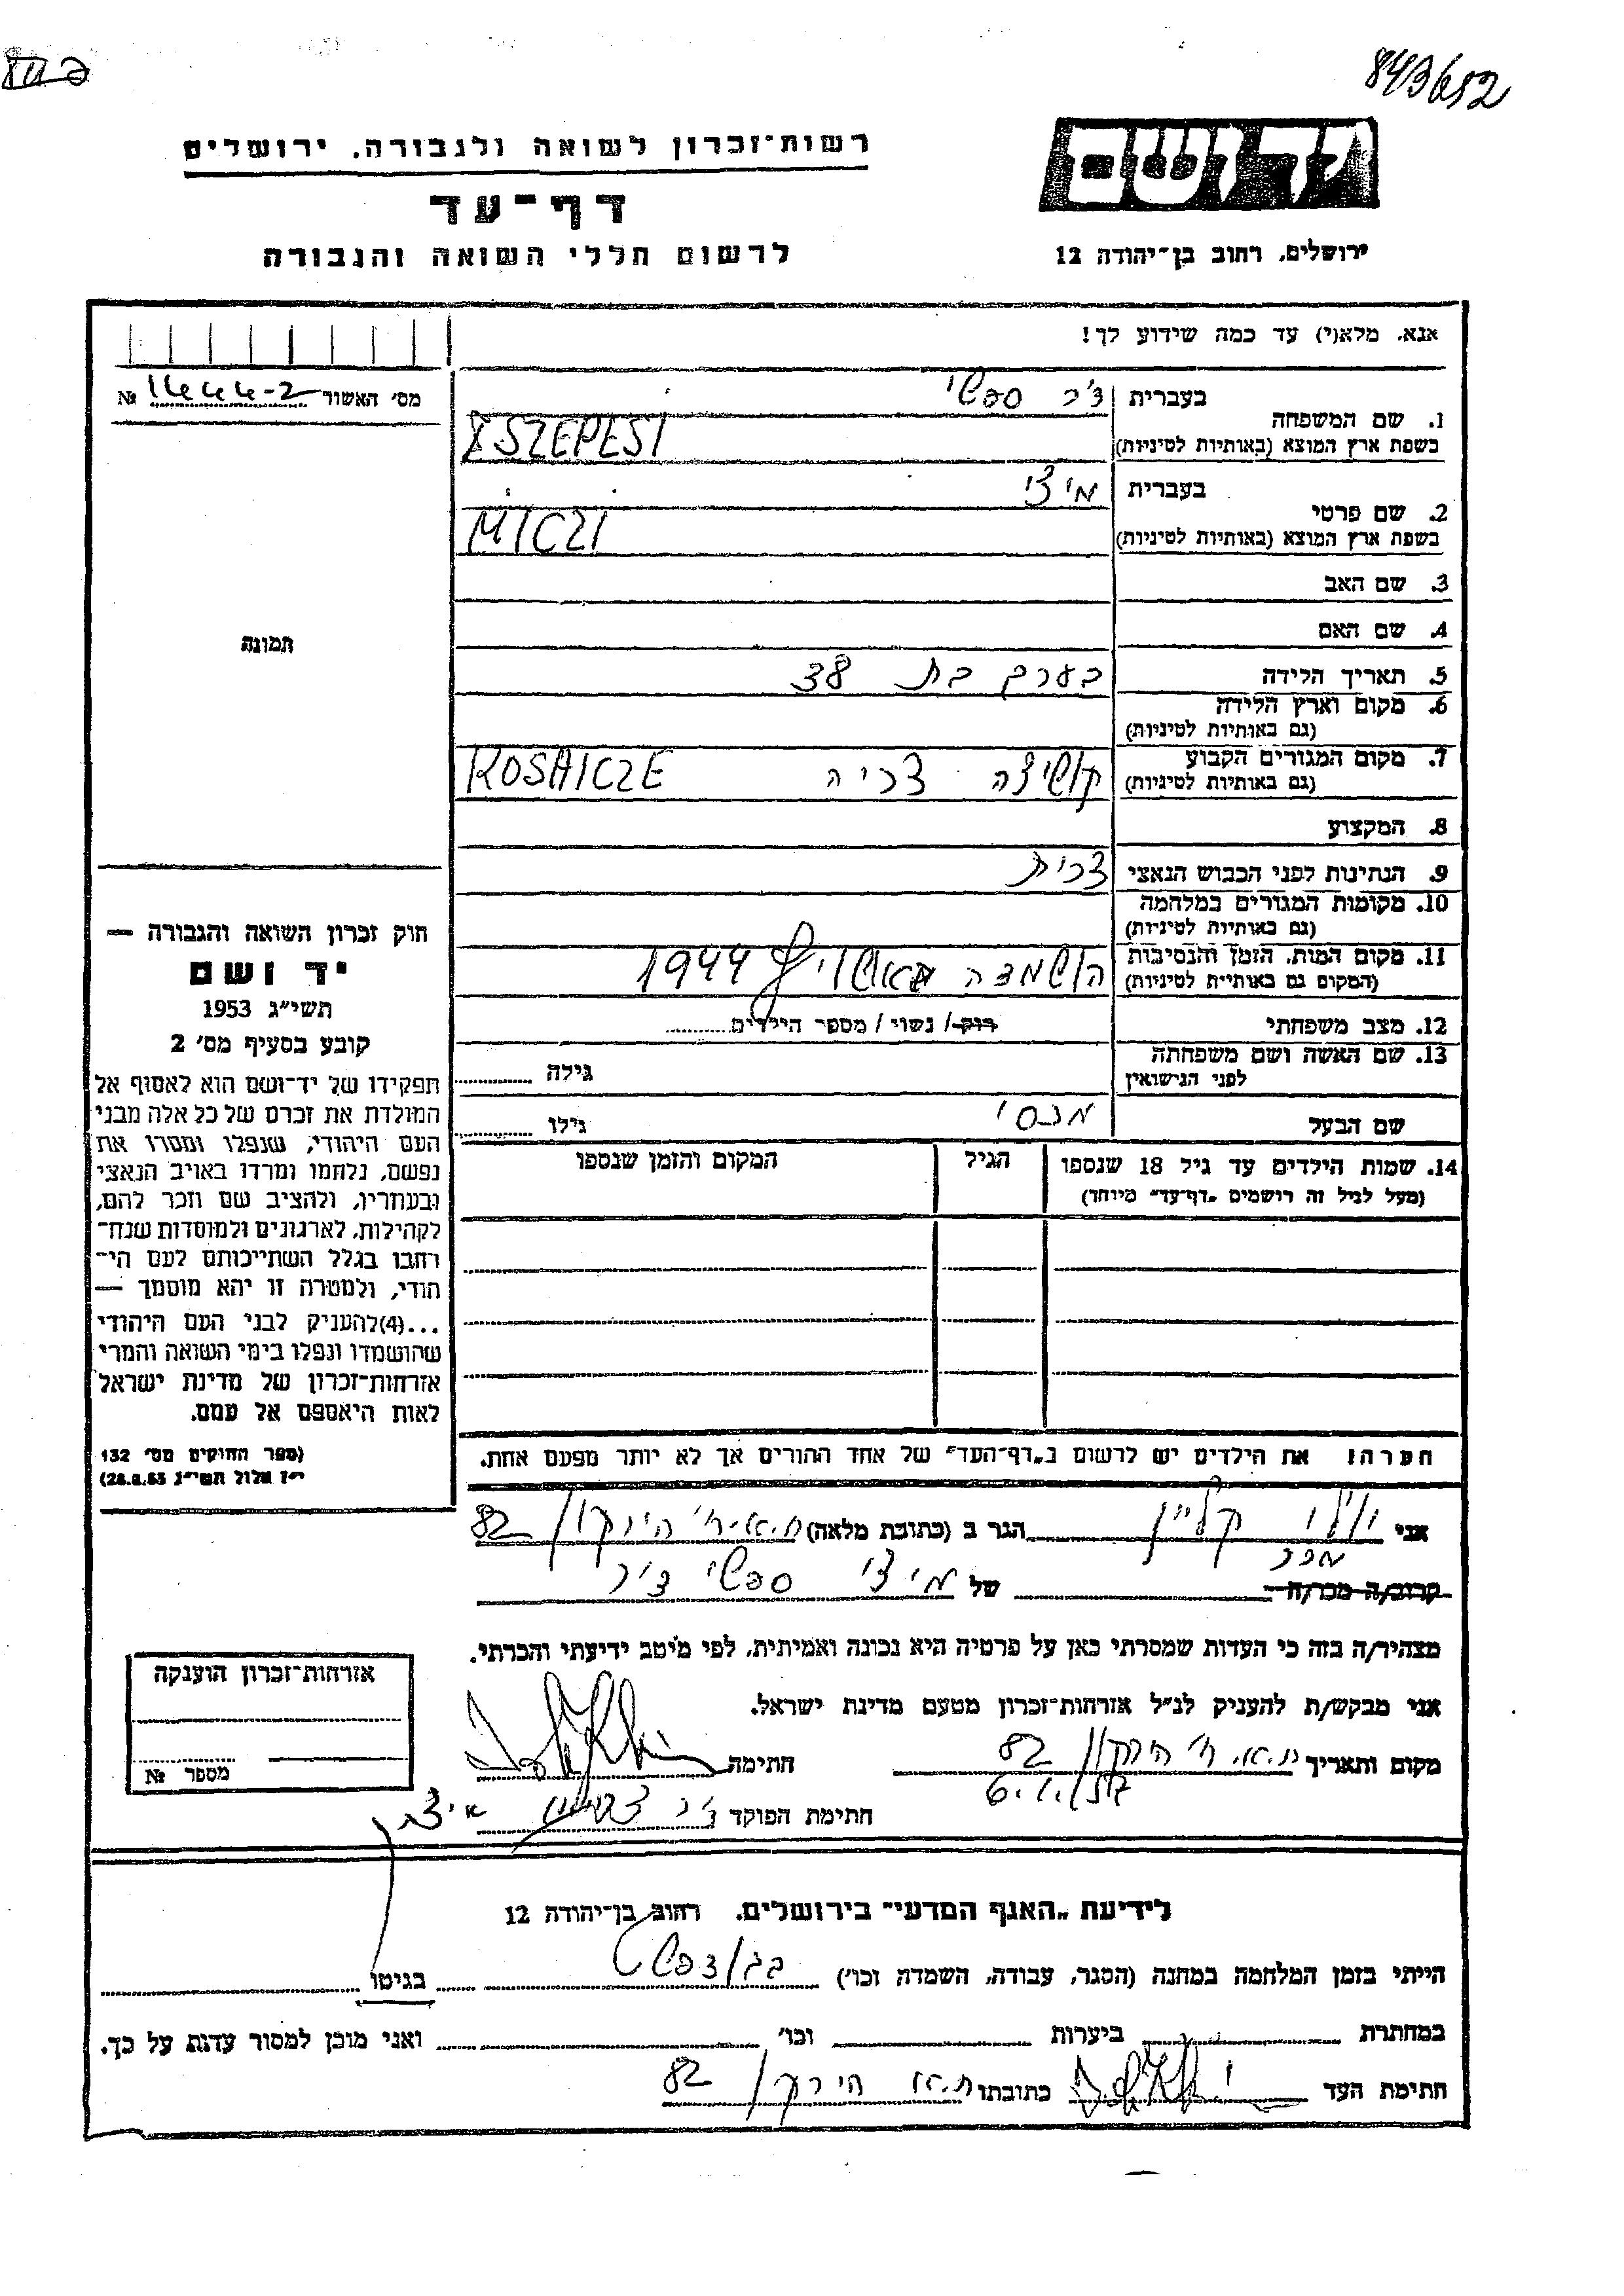 843652
רשות־זכרון לשואה ולגבורה, ירושלים
דף־עד
לרשום חללי השואה והגבורה
יד ושם
ירושלים, רחוב בן־יהודה 12
אנא, מלא(י) עד כמה שידוע לך!
מס' האשור 1444-2 №
תמונה
1. שם המשפחה
בעברית ספשי
בשפת ארץ המוצא (באותיות לטיניות) SZEPESI
2. שם פרטי
בעברית מיצי
בשפת ארץ המוצא (באותיות לטיניות) MICZI
3. שם האב
4. שם האם
5. תאריך הלידה בערך בת 38
6. מקום וארץ הלידה
(גם באותיות לטיניות)
7. מקום המגורים הקבוע קושיצה צ'כיה KOSAICZE
(גם באותיות לטיניות)
8. המקצוע
9. הנתינות לפני הכבוש הנאצי צ'כית
10. מקומות המגורים במלחמה
(גם באותיות לטיניות)
11. מקום המות, הזמן והנסיבות הושמדה 1944
(המקום גם באותיות לטיניות)
12. מצב משפחתי רוק/ נשוי/ מספר הילדים
13. שם האשה ושם משפחתה
לפני הנישואין
גילה
שם הבעל
גילו
14. שמות הילדים עד גיל 18 שנספו
(מעל לגיל זה רושמים „דף־עד" מיוחד)
הגיל
המקום והזמן שנספו
חוק זכרון השואה והגבורה —
יד ושם
תשי"ג 1953
קובע בסעיף מס' 2
תפקידו של יד־ושם הוא לאסוף אל
המולדת את זכרם של כל אלה מבני
העם היהודי, שנפלו ומסרו את
נפשם, נלחמו ומרדו באויב הנאצי
ובעוזריו, ולהציב שם וזכר להם,
לקהילות, לארגונים ולמוסדות שנח־
רבו בגלל השתייכותם לעם הי־
הודי, ולמטרה זו יהא מוסמך —
...(4)להעניק לבני העם היהודי
שהושמדו ונפלו בימי השואה והמרי
אזרחות־זכרון של מדינת ישראל
לאות היאספם אל עמם.
(ספר החוקים מס' 132
י"ז אלול תשי"ג 28.8.53)
הערה: את הילדים יש לרשום ב„דף־העד" של אחד ההורים אך לא יותר מפעם אחת.
אני וילי קליין הגר ב (כתובת מלאה) ת.א. רח' הירקון 82
קרוב/ה מכר/ה מכר של מיצי ספשי
מצהיר/ה בזה כי העדות שמסרתי כאן על פרטיה היא נכונה ואמיתית, לפי מיטב ידיעתי והכרתי.
אני מבקש/ת להעניק לנ"ל אזרחות־זכרון מטעם מדינת ישראל.
מקום ותאריך ת.א. רח' הירקון 82
חתימה
חתימת הפוקד
אזרחות־זכרון הוענקה
מספר №
לידיעת „האגף המדעי" בירושלים, רחוב בן־יהודה 12
הייתי בזמן המלחמה במחנה (הסגר, עבודה, השמדה וכו') בגיטו
במחתרת ביערות וכו' ואני מוכן למסור עדות על כך.
חתימת העד כתובתו ת.א. הירקון 82